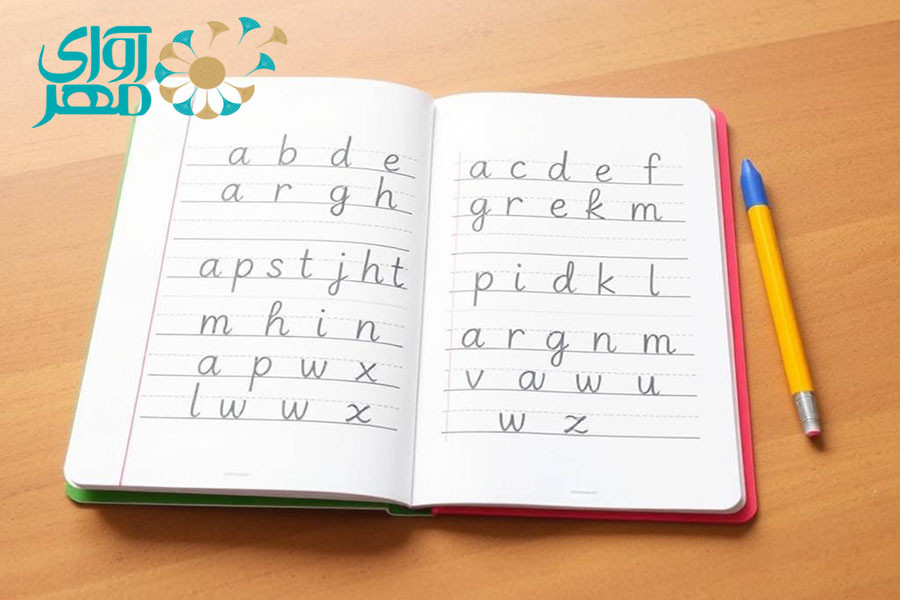 آوای
مهر
a b d e
a r g h
a p s t j h t
m h i n
a p w x
l w w x
a c d e f
g r e k m
p i d k l
a r g n m
v a w u
w z